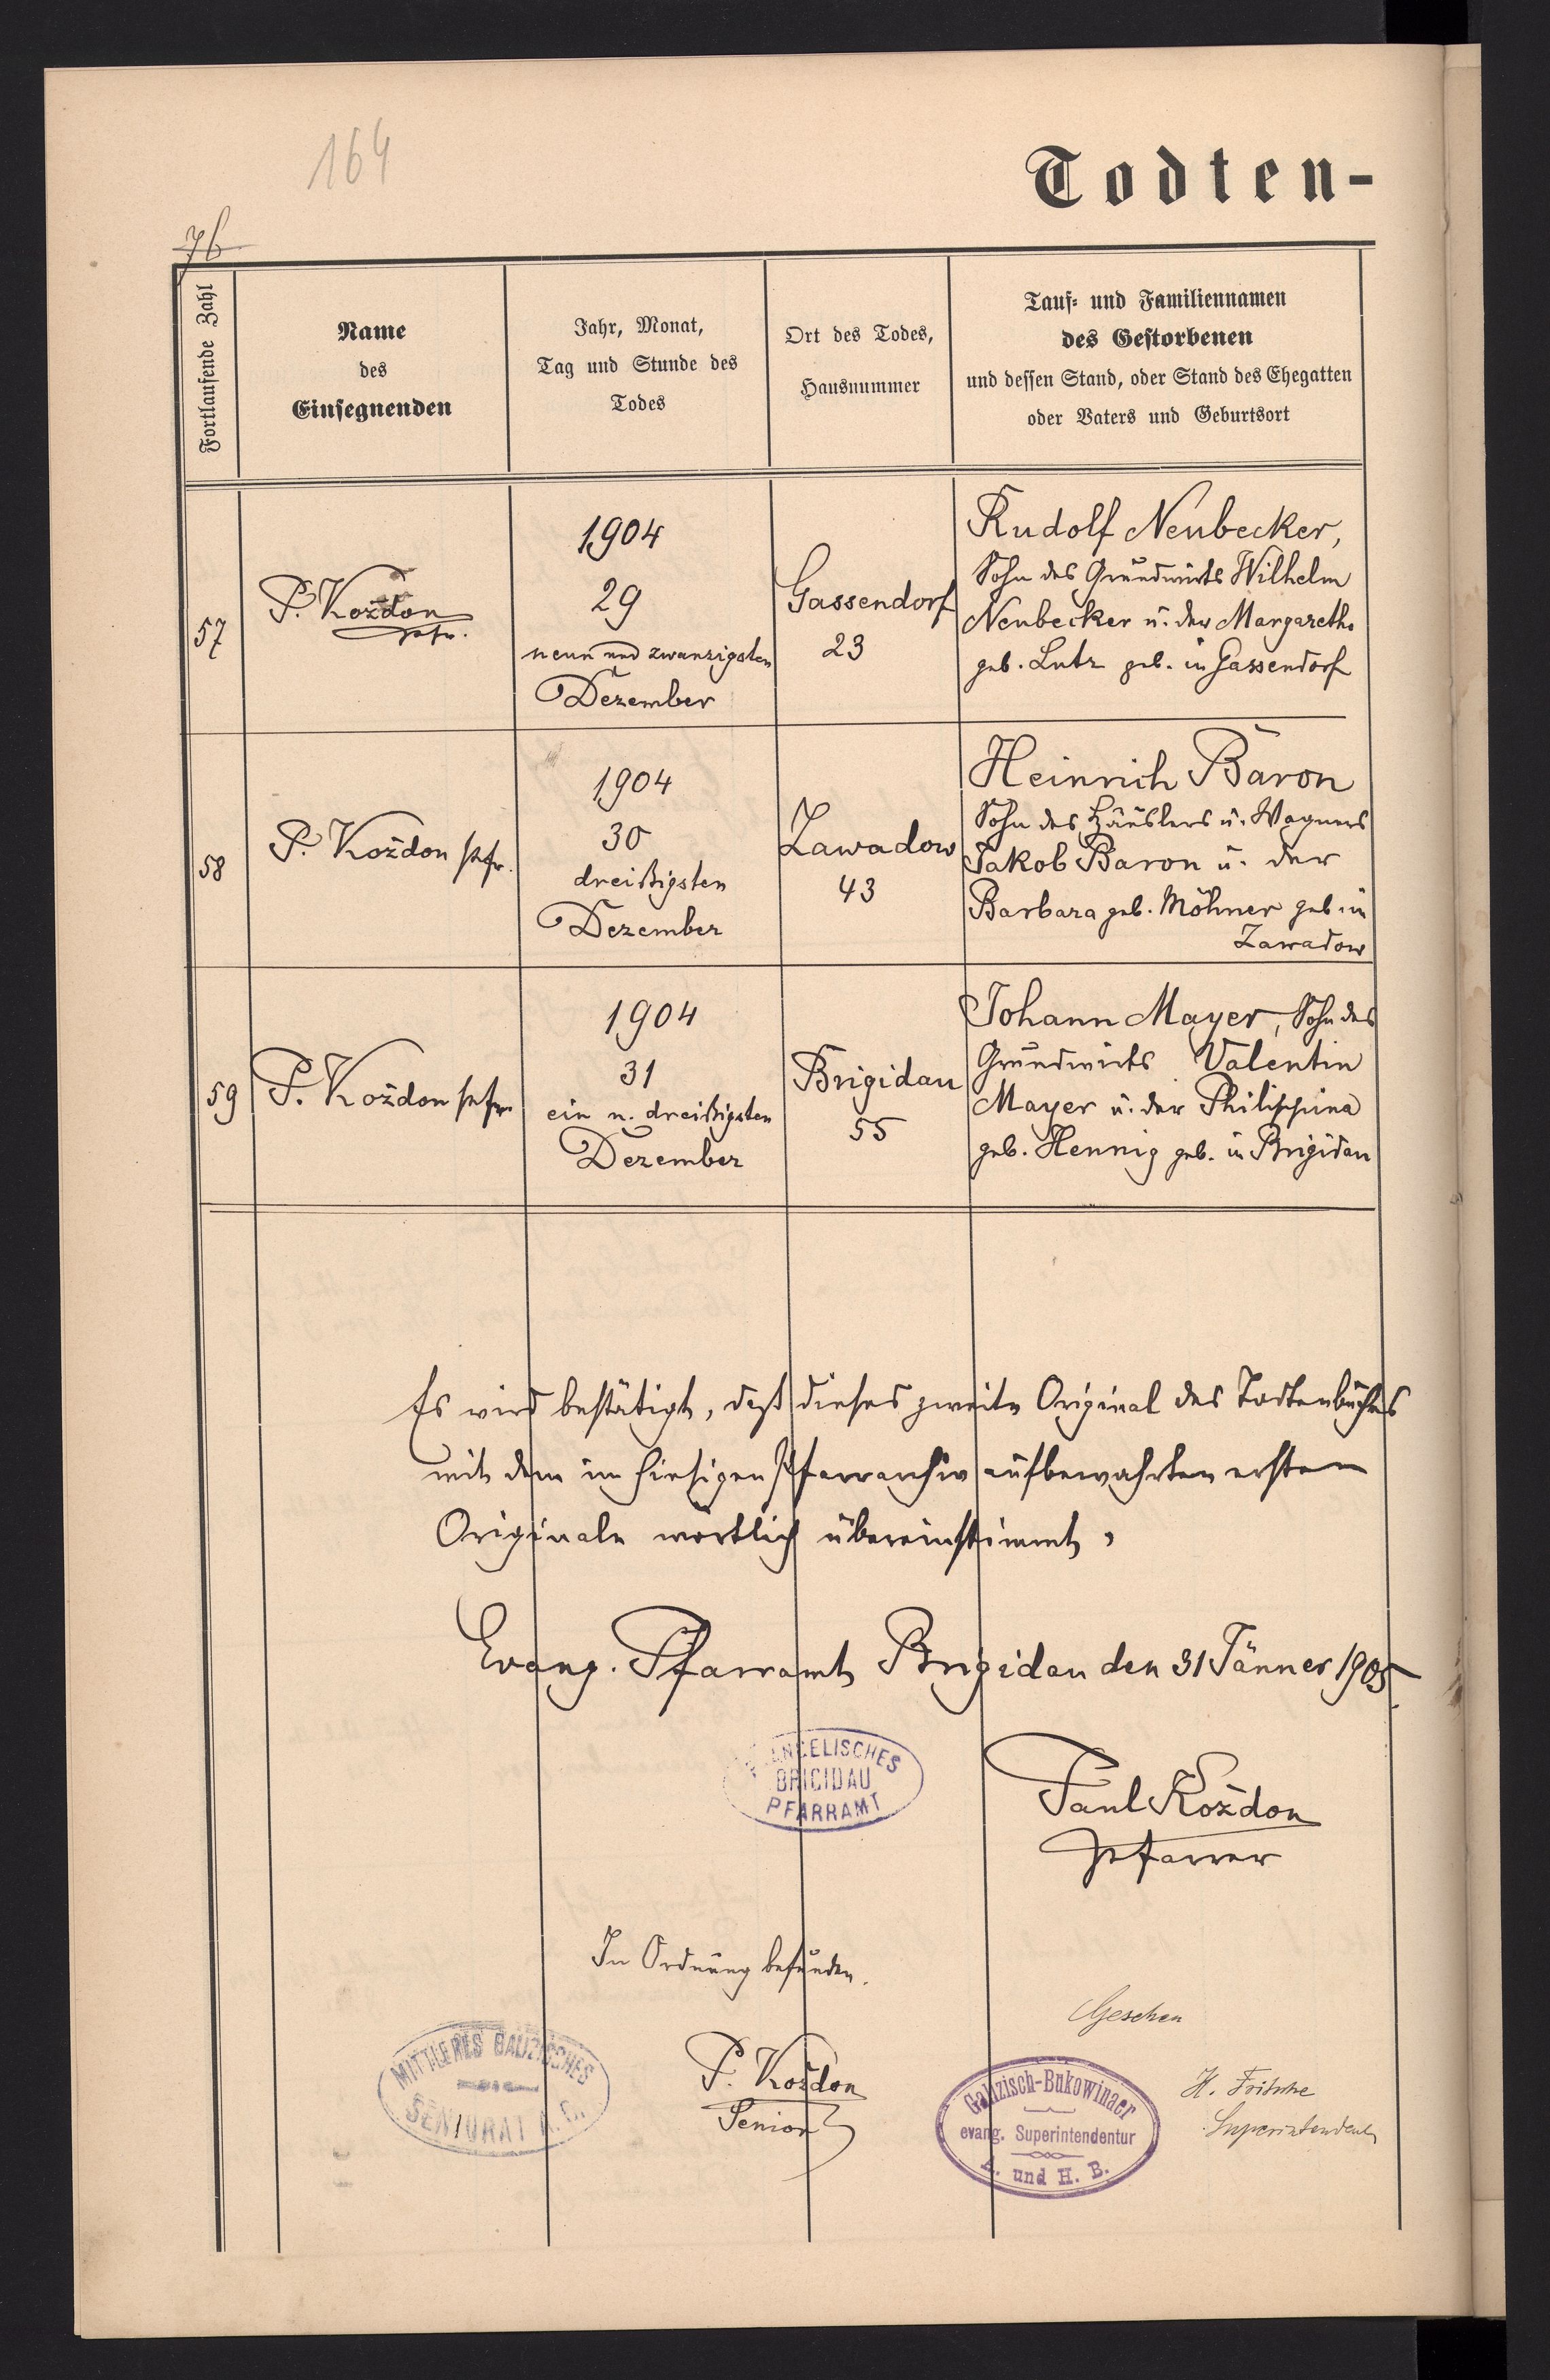 164
Todten-
76
Fortlaufende Zahl
Name
des
Einsegnenden
Jahr, Monat,
Tag und Stunde des
Todes
Ort des Todes,
Hausnummer
Tauf- und Familiennamen
des Gestorbenen
und dessen Stand, oder Stand des Ehegatten
oder Vaters und Geburtsort
57
P. Kożdon
Pfr.
1904
29
neun und zwanzigsten
Dezember
Gassendorf
23
Rudolf Neubecker,
Sohn des Grundwirts Wilhelm
Neubecker u. der Margarethe
geb. Lutz geb. in Gassendorf
58
P. Kożdon Pfr.
1904
30
dreißigsten
Dezember
Zawadow
43
Heinrich Baron
Sohn des Häuslers u. Wagners
Jakob Baron u. der
Barbara geb. Möhner geb in
Zawadow
59
P. Kożdon Pfr.
1904
31
ein u. dreißigsten
Dezember
Brigidau
55
Johann Mayer, Sohn des
Grundwirts Valentin
Mayer u. der Philippina
geb. Hennig geb. in Brigidau
Es wird bestätigt, daß dieses zweite Original des Todtenbuches
mit dem im hiesigen Pfarrarchiv aufbewahrten ersten
Originale wörtlich übereinstimmt.
Evang. Pfarramt Brigidau den 31 Jänner 1905.
EVANGELISCHES
BRIGIDAU
PFARRAMT
Paul Kożdon
Pfarrer
In Ordnung befunden.
Gesehen
MITTLERES GALIZISCHES
SENIORAT A. C.
P. Kożdon
Senior
Galizisch-Bukowinaer
evang. Superintendentur
A. und H. B.
H. Fritsche
Superintendent